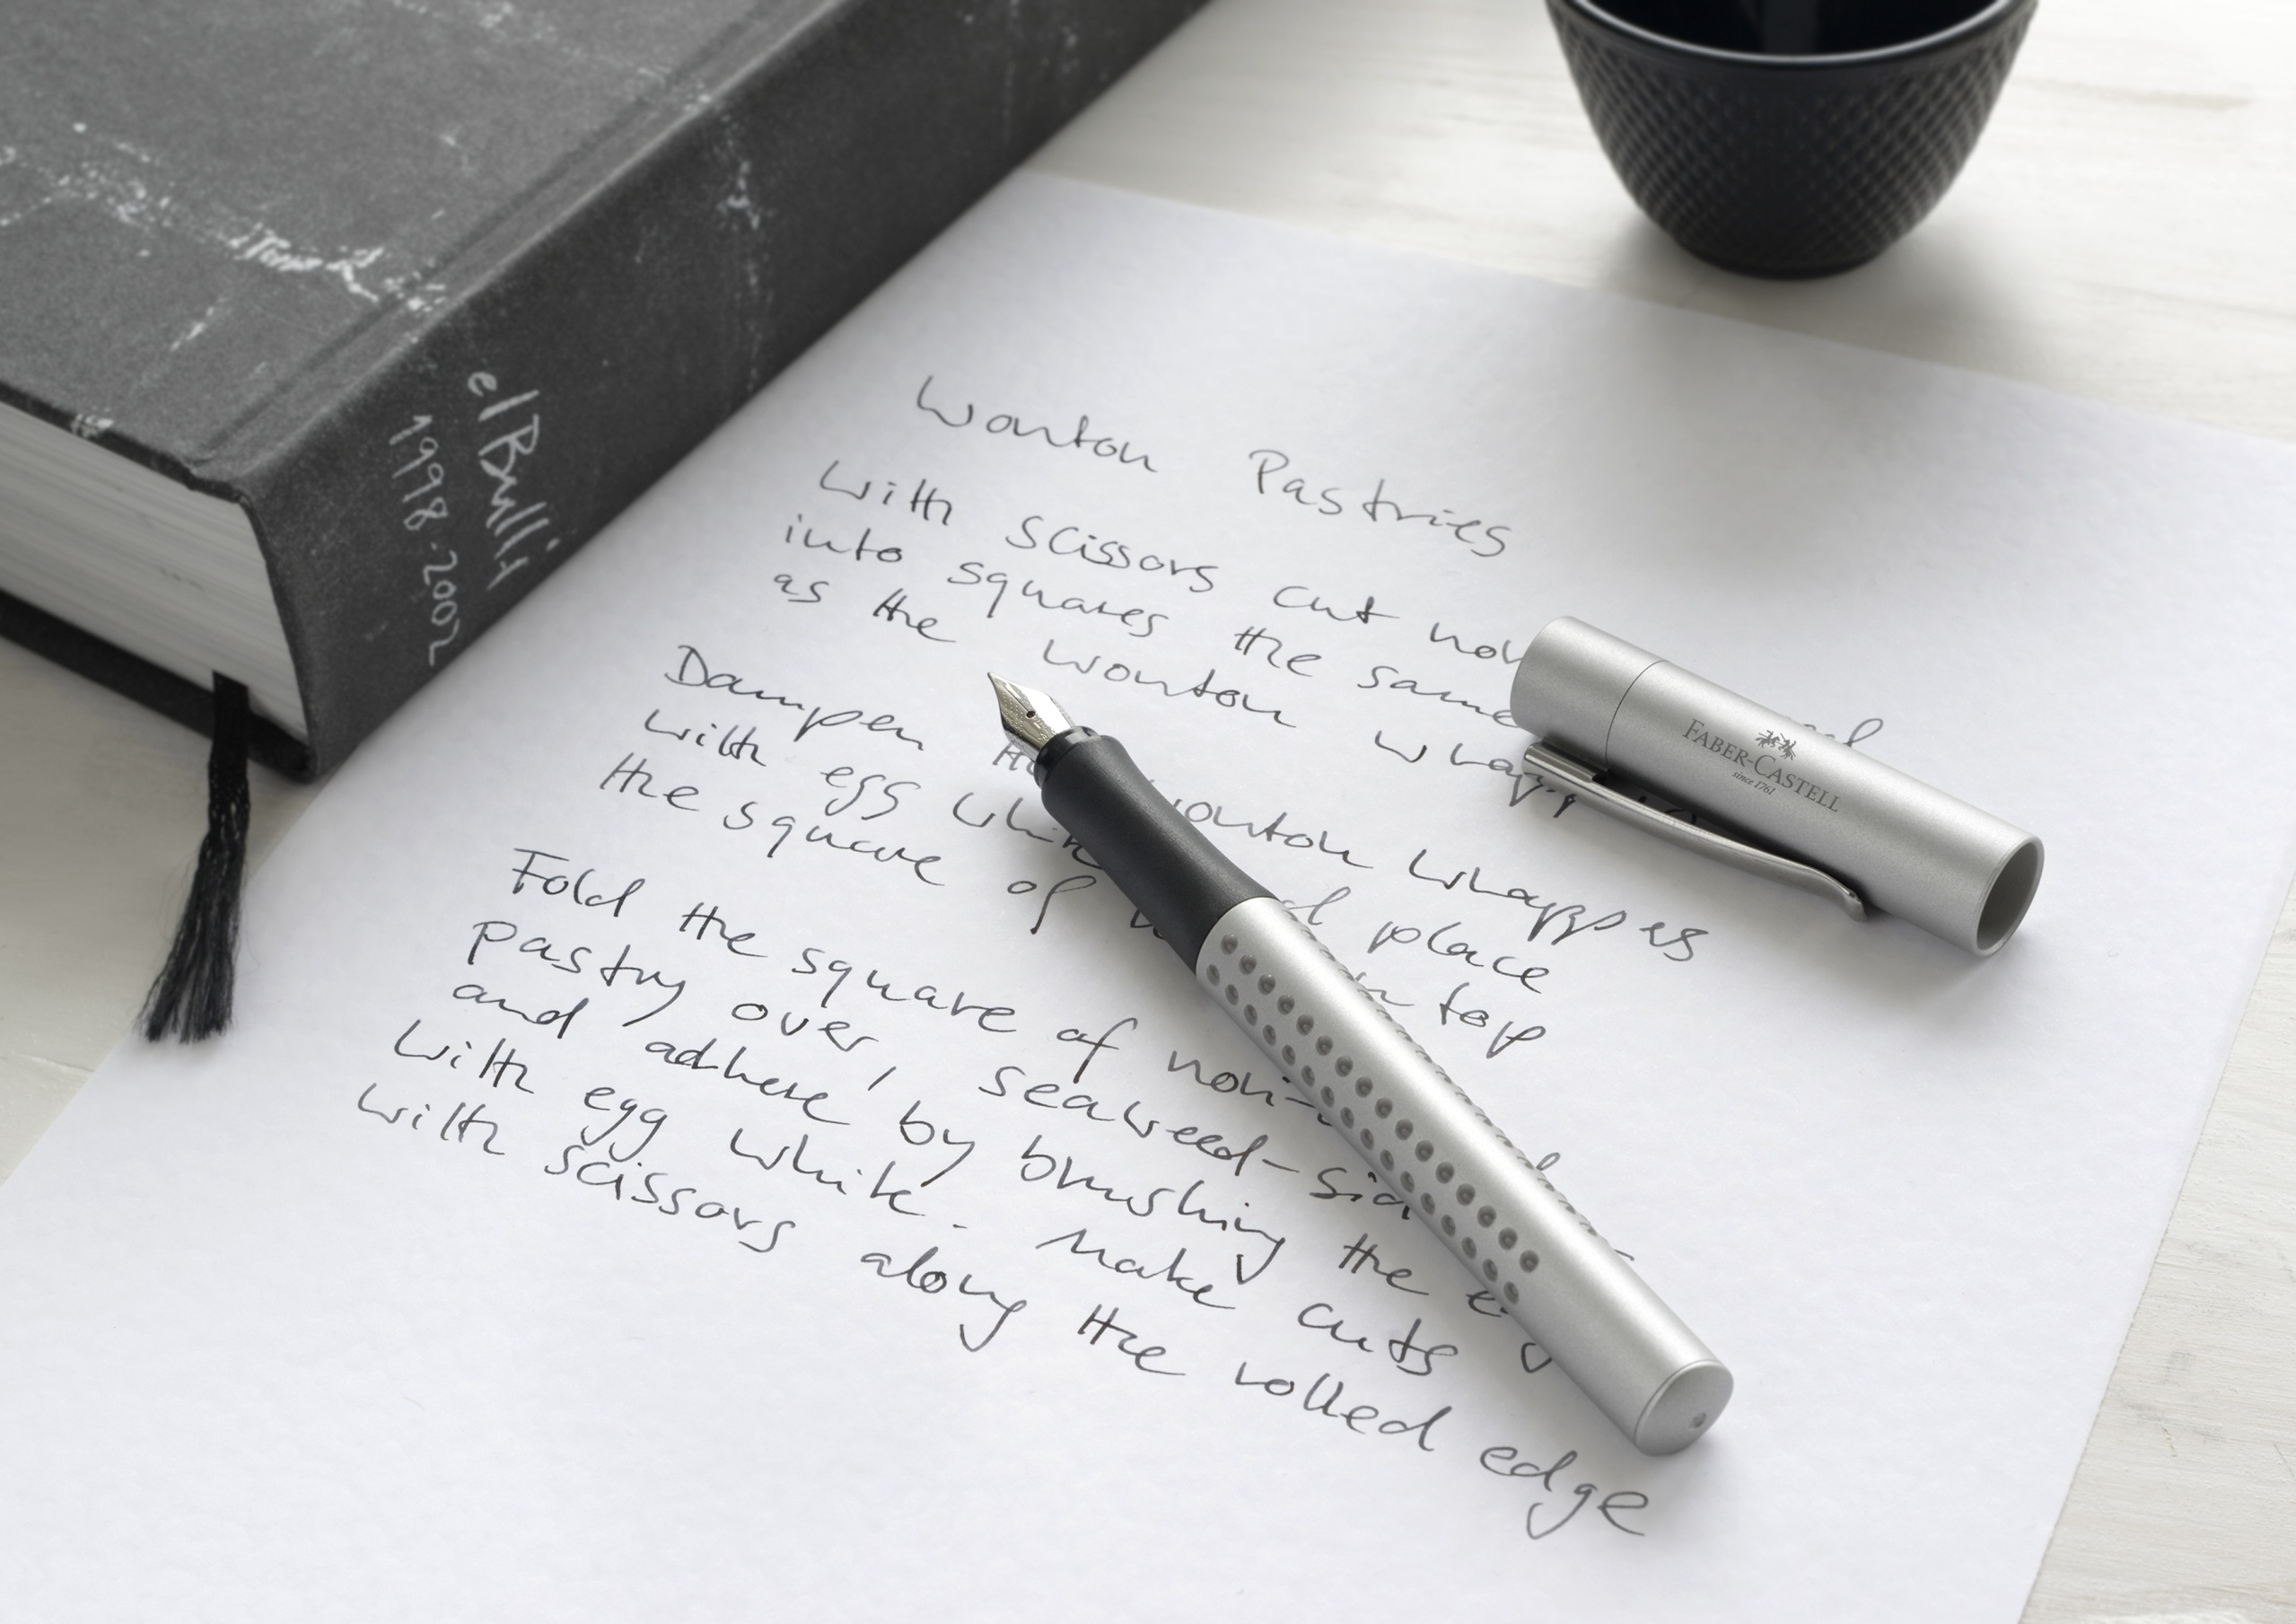 elBulli
1998-2002
Wonton Pastries
With scissors cut
into squares the same
as the wonton
Dampen wonton wrappers
with egg place
the square of top
Fold the square of nori-
pastry over, seaweed-
and adhere by brushing the
with egg white. Make cuts
with scissors along the rolled edge
FABER-CASTELL
since 1761